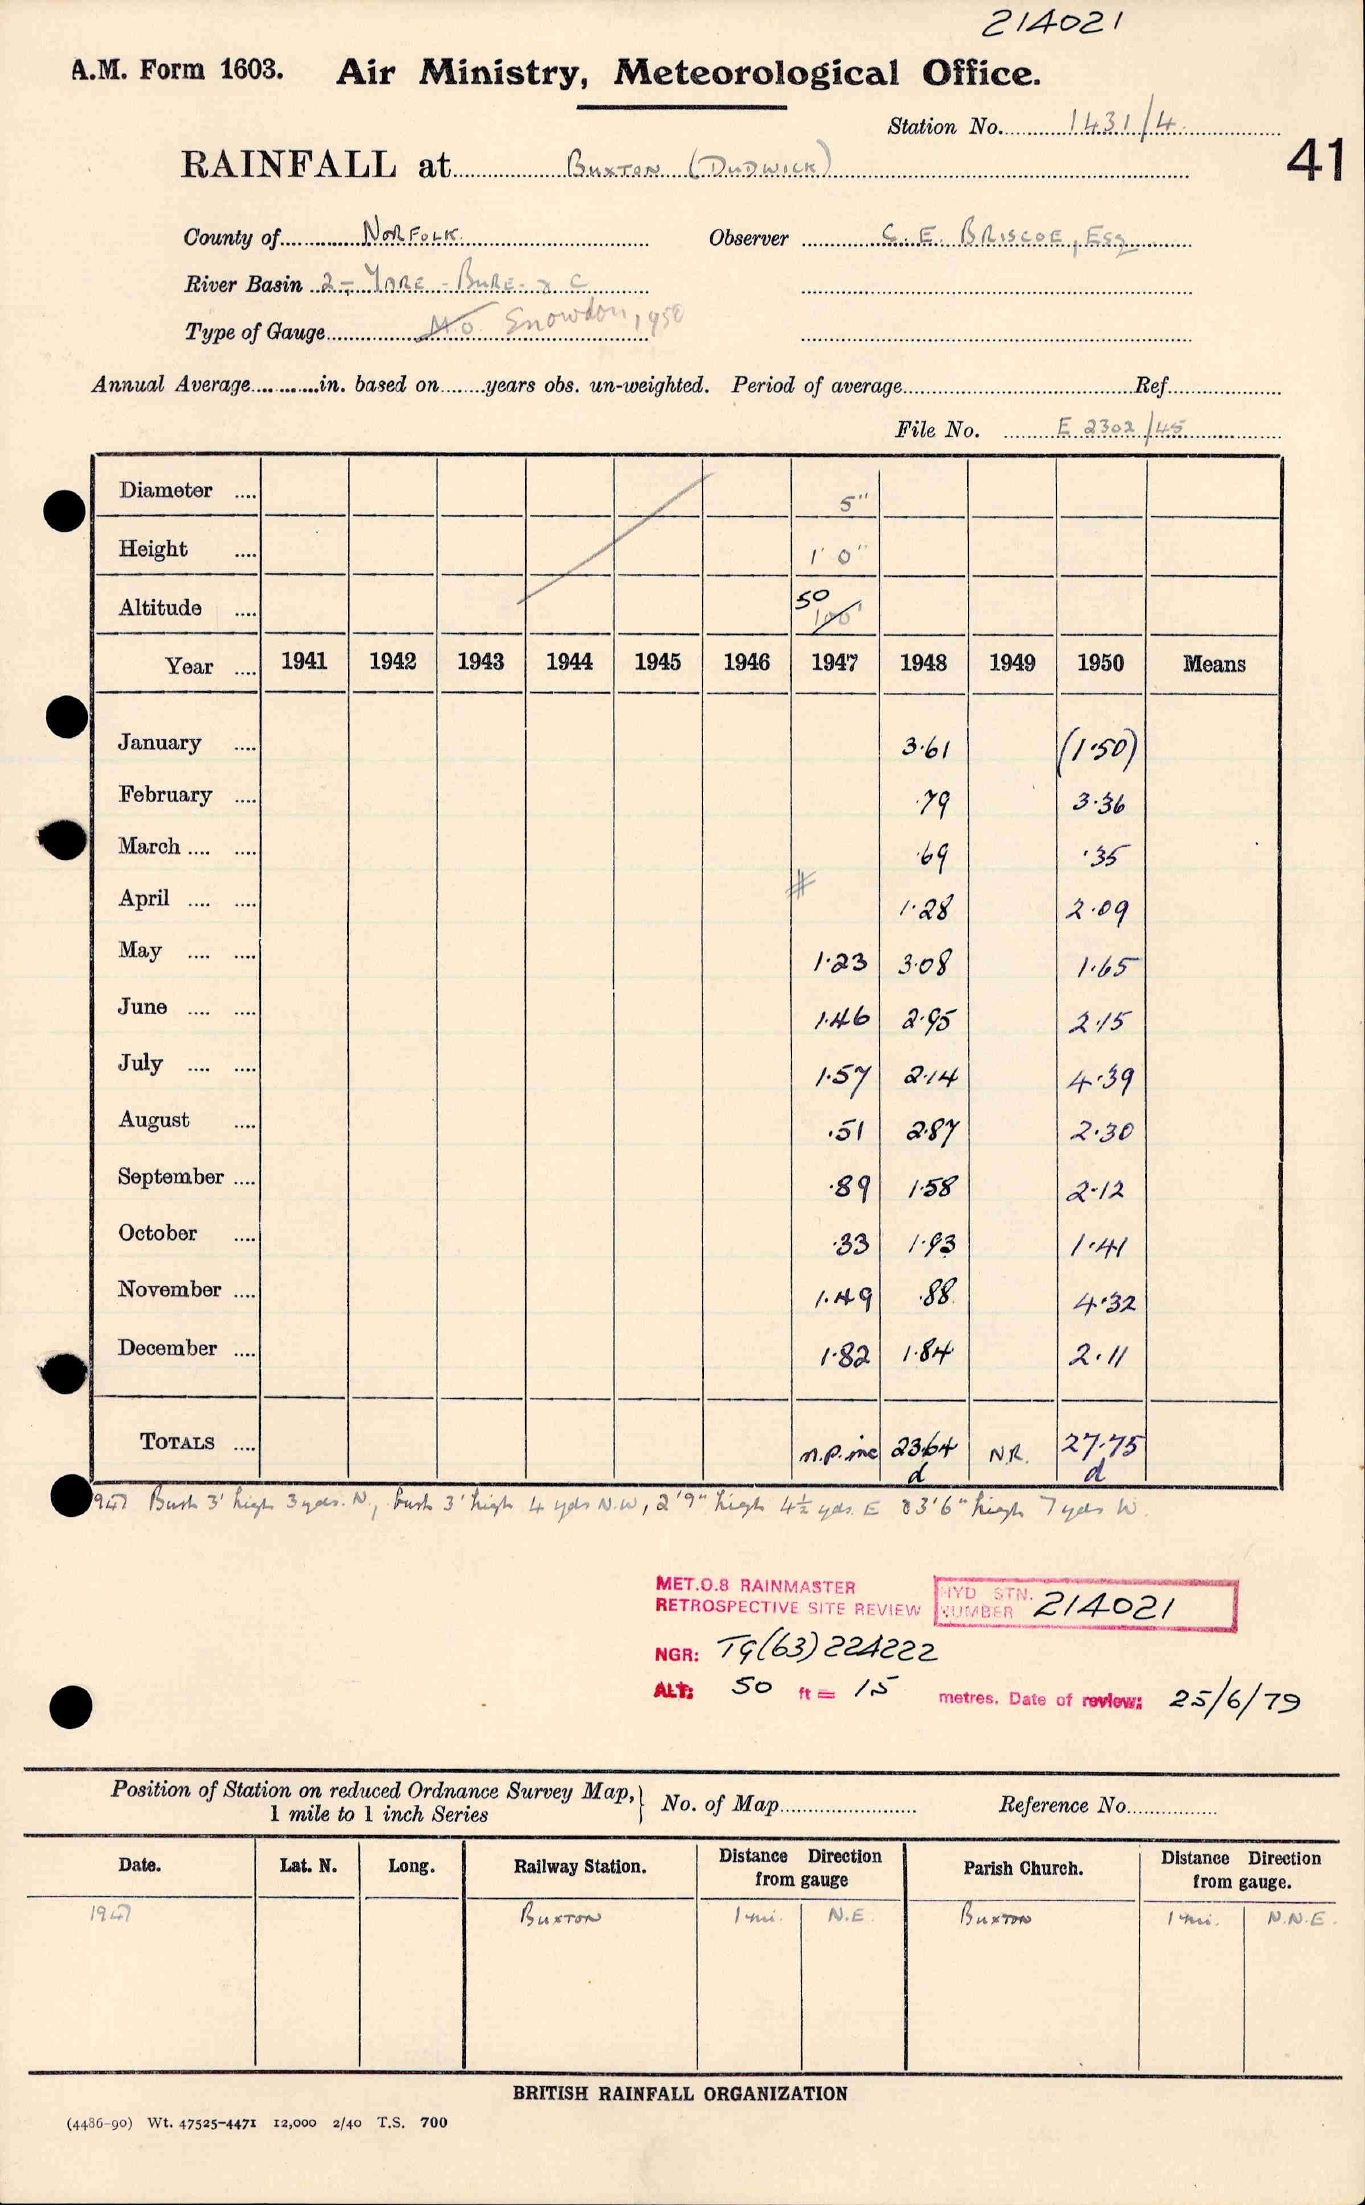 214021
A.M. Form 1603. Air Ministry, Meteorological Office.
Station No. 1431/4
41
RAINFALL at Buxton (Dudwick)
County of Norfolk. Observer C. E. Briscoe, Esq
River Basin 2 - Yare - Bure - & C
Type of Gauge M.O. Snowdon, 1950
Annual Average in. based on years obs. un-weighted. Period of average Ref
File No. E 2302/45
Diameter .... 5"
Height .... 1' 0"
Altitude .... 50 100'
Year .... 1941 1942 1943 1944 1945 1946 1947 1948 1949 1950 Means
January .... 3.61 (1.50)
February .... .79 3.36
March .... .... .69 .35
April .... .... 1.28 2.09
May .... .... 1.23 3.08 1.65
June .... .... 1.46 2.95 2.15
July .... .... 1.57 2.14 4.39
August .... .51 2.87 2.30
September .... .89 1.58 2.12
October .... .33 1.93 1.41
November .... 1.49 .88 4.32
December .... 1.82 1.84 2.11
TOTALS .... n.p. inc 23.64 N.R. 27.75
d d
1947 Bush 3' high 3 yds. N., bush 3' high 4 yds N.W, 2'9" high 4½ yds. E & 3'6" high 7 yds W.
MET.O.8 RAINMASTER
RETROSPECTIVE SITE REVIEW
HYD STN. NUMBER 214021
NGR: TG(63)224222
ALT: 50 ft = 15 metres. Date of review: 25/6/79
Position of Station on reduced Ordnance Survey Map, 1 mile to 1 inch Series } No. of Map Reference No.
Date. Lat. N. Long. Railway Station. Distance Direction from gauge Parish Church. Distance Direction from gauge.
1947 Buxton 1 mi. N.E. Buxton 1 mi. N.N.E.
BRITISH RAINFALL ORGANIZATION
(4486-90) Wt. 47525-4471 12,000 2/40 T.S. 700